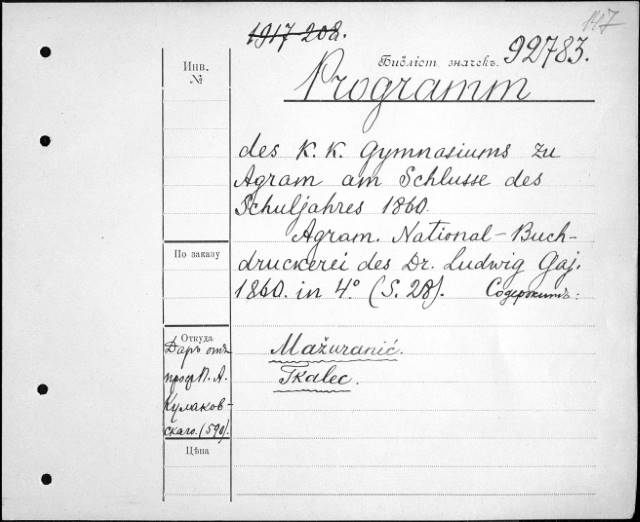 147
1917 208.
Библіот. значекъ. 92783.
Инв.
№
Programm
des K. K. Gymnasiums zu
Agram am Schlusse des
Schuljahres 1860.
Agram. National-Buch-
druckerei des Dr. Ludwig Gaj.
1860. in 4º (S. 28). Содержитъ:
По заказу
Откуда
Даръ отъ
проф. П. А.
Кулаков-
скаго. (590)
Mažuranić.
Tkalec.
Цѣна